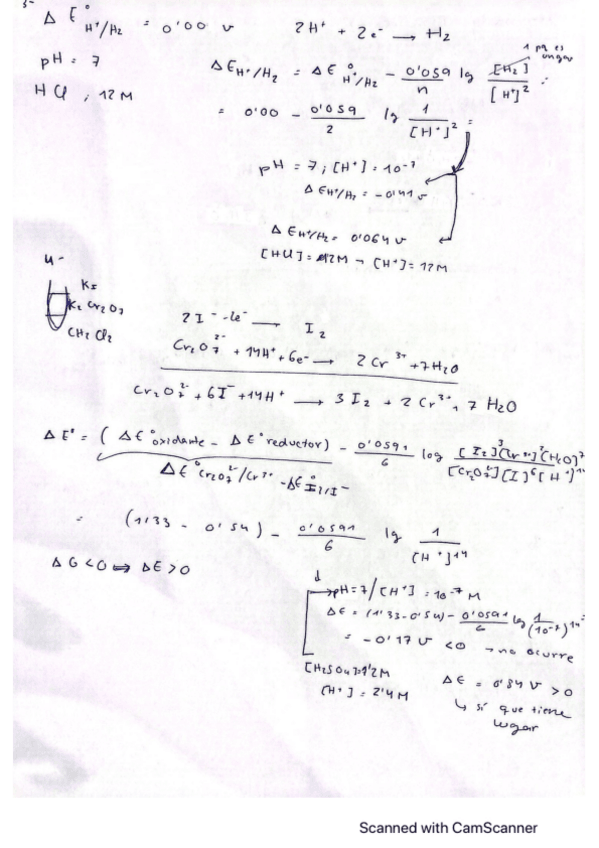 3-
Δ E°H⁺/H₂ = 0'00 v 2H⁺ + 2e⁻ → H₂
pH = 7 1 pq es
ΔEH⁺/H₂ = ΔE°H⁺/H₂ - 0'059/n lg [H₂]/[H⁺]²
HCl ; 12M
= 0'00 - 0'059/2 lg 1/[H⁺]² =
pH = 7 ; [H⁺] = 10⁻⁷
ΔEH⁺/H₂ = -0'41 v
ΔEH⁺/H₂ = 0'064 v
[HCl] = 12M → [H⁺] = 12M
4-
KI
K₂Cr₂O₇
CH₂Cl₂
2I⁻ - 2e⁻ → I₂
Cr₂O₇²⁻ + 14H⁺ + 6e⁻ → 2Cr³⁺ + 7H₂O
Cr₂O₇²⁻ + 6I⁻ + 14H⁺ → 3I₂ + 2Cr³⁺ + 7H₂O
ΔE° = (ΔE°oxidante - ΔE°reductor) - 0'0591/6 log [I₂]³[Cr³⁺]²[H₂O]⁷/[Cr₂O₇²⁻][I]⁶[H⁺]¹⁴
ΔE°Cr₂O₇²⁻/Cr³⁺ - ΔE°I₂/I⁻
= (1'33 - 0'54) - 0'0591/6 lg 1/[H⁺]¹⁴
ΔG<0 ⟺ ΔE>0
pH=7/[H⁺] = 10⁻⁷ M
ΔE = (1'33-0'54) - 0'0591/6 log 1/(10⁻⁷)¹⁴ =
= -0'17 v <0 → no ocurre
[H₂SO₄]=1'2M
[H⁺] = 2'4M
ΔE = 0'84 v >0
↳ sí que tiene
lugar
Scanned with CamScanner